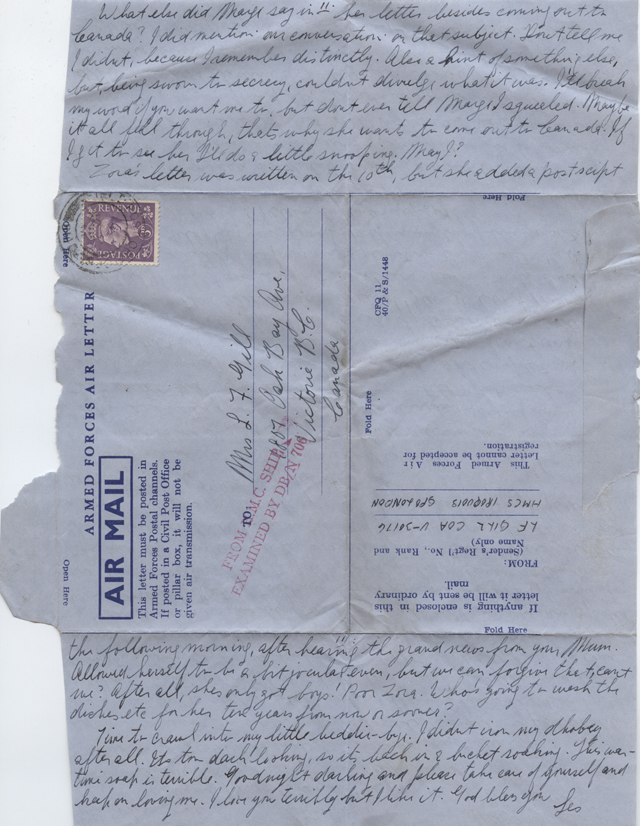 What else did Marge say in her letter besides coming out to
Canada? I did mention our conversation on that subject. Don't tell me
I didn't, because I remember distinctly. Also a hint of something else,
but, being sworn to secrecy, couldn't divulge what it was. I'd break
my word if you want me to, but don't ever tell Marge I squealed. Maybe
it all fell through, that's why she wants to come out to Canada. If
I get to see her I'll do a little snooping. May I?
Zora's letter was written on the 10th, but she added a postscript
REVENUE
POSTAGE
Open Here
ARMED FORCES AIR LETTER
AIR MAIL
This letter must be posted in
Armed Forces Postal channels.
If posted in a Civil Post Office
or pillar box, it will not be
given air transmission.
Open Here
TO
Mrs L. F. Gill
Oak Bay Ave,
Victoria B.C.
Canada
FROM H.M.C. SHIP
EXAMINED BY DB/N 706
Fold Here
CPQ 11
40/P & S/1448
Fold Here
This Armed Forces Air
Letter cannot be accepted for
registration.
HMCS IROQUOIS GPO LONDON
L.F. GILL COA V-30176
(Sender's Reg't'l No., Rank and
Name only)
FROM:
If anything is enclosed in this
letter it will be sent by ordinary
mail.
Fold Here
the following morning, after hearing the grand news from your Mum.
Allowed herself to be a bit jocular even, but we can forgive that, can't
we? After all, she's only got boys! Poor Zora. Who's going to wash the
dishes etc for her ten years from now or sooner?
Time to crawl into my little bedder-bye. I didn't iron my dhobey
after all. It's too dark looking, so it's back in a bucket soaking. This war-
time soap is terrible. Goodnight darling and please take care of yourself and
keep on loving me. I love you terribly but I like it. God bless you
Les